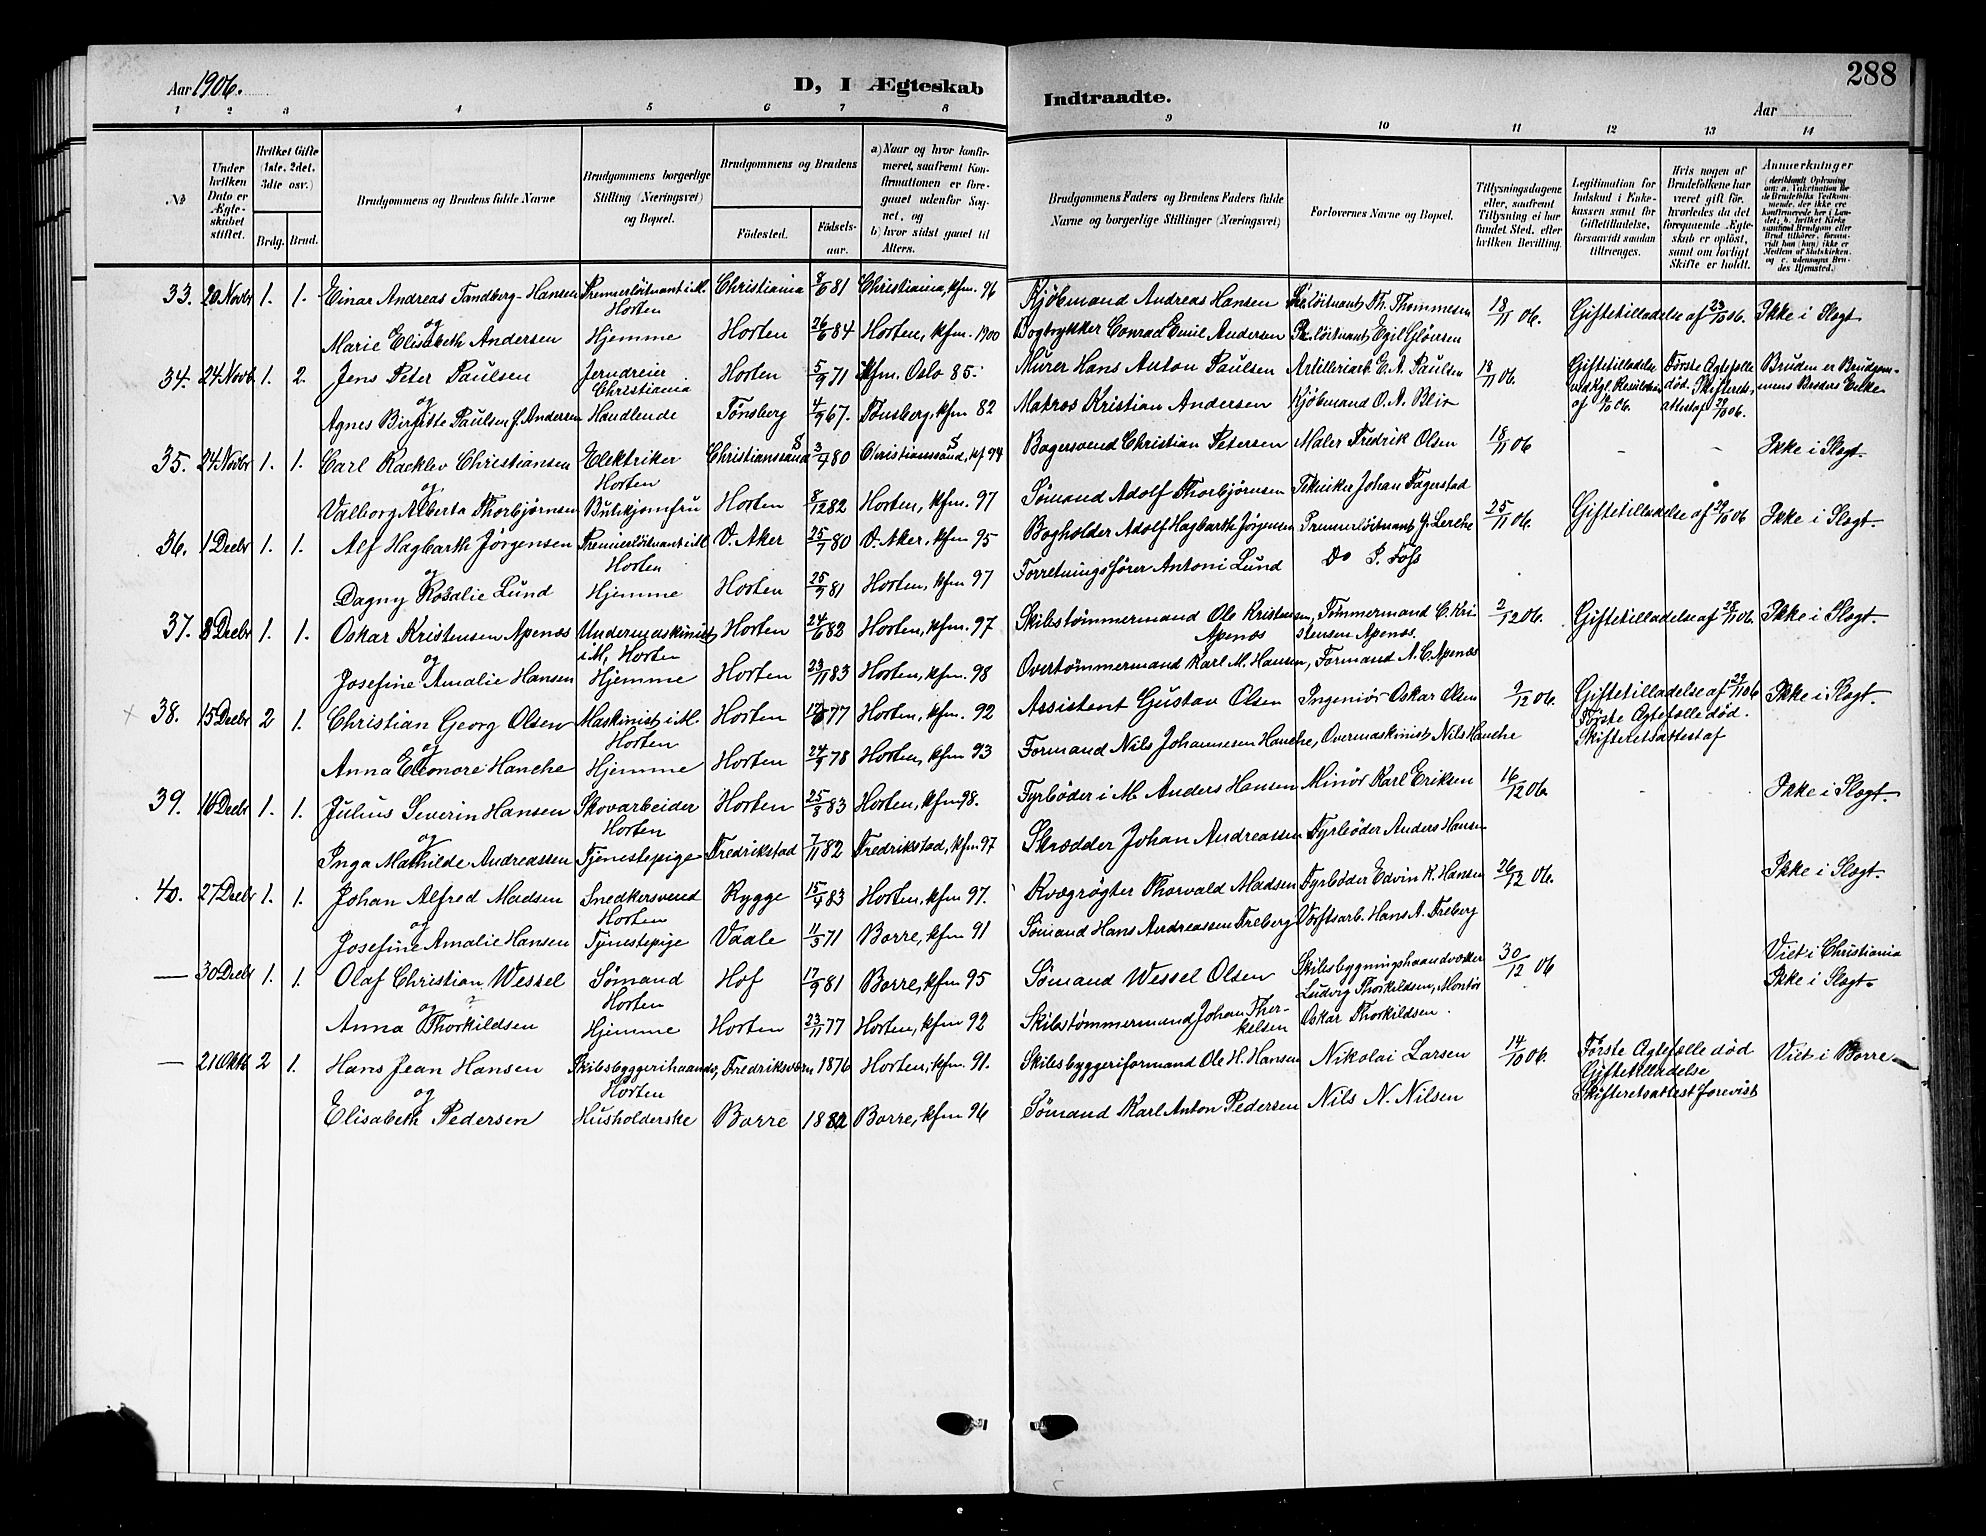 288
Aar 1906.
D, I Ægteskab
Indtraadte.
Aar
1 2 3 4 5 6 7 8 9 10 11 12 13 14
No
Under hvilken Dato er Ægteskabet stiftet.
Hvilket Gifte (1ste, 2det, 3die osv.)
Brdg. Brud.
Brudgommens og Brudens fulde Navne
Brudgommens borgerlige Stilling (Næringsvei) og Bopæl.
Brudgommens og Brudens
Fødested.
Fødselsaar.
a) Naar og hvor konfirmeret, saafremt Konfirmationen er foregaaet udenfor Sognet, og
b) hvor sidst gaaet til Alters.
Brudgommens Faders og Brudens Faders fulde Navne og borgerlige Stillinger (Næringsvei)
Forlovernes Navne og Bopæl.
Tillysningsdagene eller, saafremt Tillysning ei har fundet Sted, efter hvilken Bevilling.
Legitimation for Indskud i Enkekassen samt for Giftetilladelse, forsaavidt saadan tiltrænges.
Hvis nogen af Brudefolkene har været gift før, hvorledes da det foregaaende Ægteskab er opløst, samt om lovligt Skifte er holdt.
Anmerkninger
33. 20 Novbr 1. 1. Einar Andreas Tandberg-Hansen Premierløitnant i M. Christiania 8/6 81 Christiania, kfm. 96 Kjøbmand Andreas Hansen Th. Thommesen 18/11 06. Giftetilladelse af 23/10 06. Ikke i Slægt
og Horten
Marie Elisabeth Andersen Hjemme Horten 26/6 84 Horten, kfm. 1900 Bogtrykker Conrad Emil Andersen Pr. løitnant Egil Gløersen
34. 24 Novb. 1. 2. Jens Peter Paulsen Jerndreier Horten 5/9 71 Kfm. Oslo 85. Murer Hans Anton Paulsen Artilleriark. E. A. Paulsen 18/11 06. Giftetilladelse Første Ægtefælle Bruden er Brudgom-
og Christiania ved Kgl. Resolution død. Skifterets- mens Broders Enke
Agnes Birgitte Paulsen f. Andersen Handlende Tønsberg 4/9 67. Tønsberg, kfm 82 Matros Kristian Andersen Kjøbmand O. A. Blix
35. 24 Novbr 1. 1. Carl Racklev Christiansen Elektriker Christianssand S 3/1 80 Christianssand S, kf 94 Bagersvend Christian Petersen Maler Fredrik Olsen 18/11 06 - - Ikke i Slægt.
og Horten
Valborg Alberta Thorbjørnsen Butikjomfru Horten 8/12 82 Horten, kfm. 97 Sømand Adolf Thorbjørnsen Tekniker Johan Fagerstad
36. 1 Decbr 1. 1. Alf Hagbarth Jørgensen Premierløitnant i M V. Aker 25/7 80 V. Aker, kfm 95 Bogholder Adolf Hagbarth Jørgensen Premierløitnant Lerche 25/11 06. Giftetilladelse af 06 Ikke i Slægt.
og Horten
Dagny Rosalie Lund Hjemme Horten 25/9 81 Horten, kfm 97 Forretningsfører Antoni Lund Do P. Foss
37. 8 Decbr 1. 1. Oskar Kristensen Apenæs Undermaskinist Horten 24/6 82 Horten, kfm. 97 Skibstømmermand Ole Kristensen Tømmermand C. Kri- 2/12 06. Giftetilladelse af 28/11 06 Ikke i Slægt.
og i M, Horten Apenæs stensen Apenæs.
Josefine Amalie Hansen Hjemme Horten 23/11 83 Horten, kfm. 98 Overtømmermand Karl M. Hansen, Formand A. C. Apenæs
38. 15 Decbr 2 1. Christian Georg Olsen Maskinist i M. Horten 77 Horten, kfm. 92 Assistent Gustav Olsen Ingeniør Oskar Olsen 9/12 06. Giftetilladelse af 06 Ikke i Slægt.
og Horten Første Ægtefælle død.
Anna Eleonore Hanche Hjemme Horten 24/9 78 Horten, kfm 93 Formand Nils Johannesen Hanche, Overmaskinist Nils Hanche Skifteretsattest af
39. 16 Decbr 1. 1. Julius Severin Hansen Skovarbeider Horten 25/3 83 Horten, kfm 98. Fyrbøder i M. Anders Hansen Minør Karl Eriksen 16/12 06. - - Ikke i Slægt.
og Horten
Inga Mathilde Andreassen Tjenestepige Fredrikstad 7/11 82 Fredrikstad, kfm. 97 Skrædder Johan Andreassen Fyrbøder Anders Hansen
40. 27 Decbr 1. 1. Johan Alfred Madsen Snedkersvend Rygge 15/4 83 Horten, kfm 97. Kvægrøgter Thorvald Madsen Fyrbøder Edvin K. Hansen 26/12 06. Ikke i Slægt.
og Horten
Josefine Amalie Hansen Tjenestepige Vaale 11/3 71 Borre, kfm 91 Sømand Hans Andreassen Freberg Værftsarb. Hans A. Freberg
— 30 Decbr 1. 1. Olaf Christian Wessel Sømand Hof 17/9 81 Borre, kfm 95 Sømand Wessel Olsen Skibsbygningshaandværker 30/12 06 Viet i Christiania
og Horten Ludvig Thorkildsen, Montør Ikke i Slægt.
Anna Thorkildsen Hjemme Horten 23/11 77 Horten, kfm 92 Skibstømmermand Johan Ther- kelsen Oskar Thorkildsen.
— 21 Oktb 2 1. Hans Jean Hansen Skibsbyggerihaandv, Fredriksværn 1876 Horten, kfm 91. Skibsbyggeriformand Ole H. Hansen Nikolai Larsen 14/10 06. Første Ægtefælle død Viet i Borre
og Horten Giftetilladelse
Elisabeth Pedersen Husholderske Borre 1882 Borre, kfm 96 Sømand Karl Anton Pedersen Nils N. Nilsen Skifteretsattest forevist